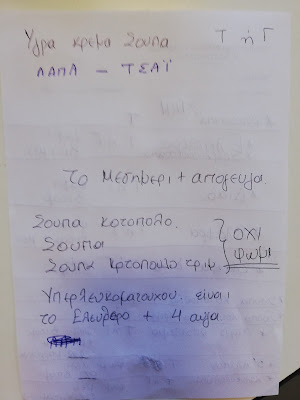 Υγρα κρεμα Σουπα Τ ή Γ
ΛΑΠΑ – ΤΣΑΪ
το Μεσημερι + απογευμα.
Σουπα κοτοπολο.
Σουπα
Σουπα κοτοπουλο τριψ.
ΟΧΙ
ψωμι
Υπερλευκοματουχου. είναι
το Ελευθερο + 4 αυγα